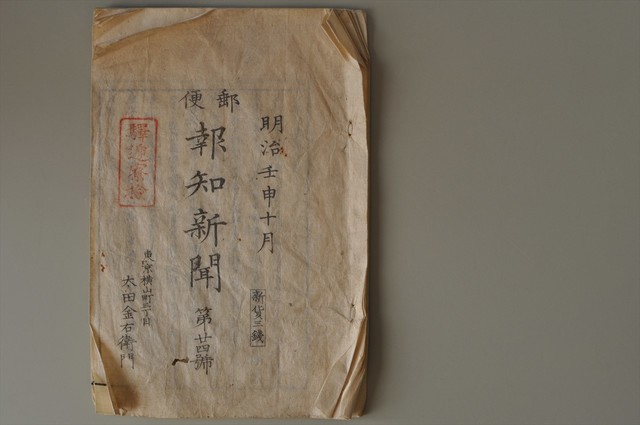 明治壬申十月
新貨三錢
郵便
報知新聞
第廿四號
東京横山町三丁目
太田金右衛門